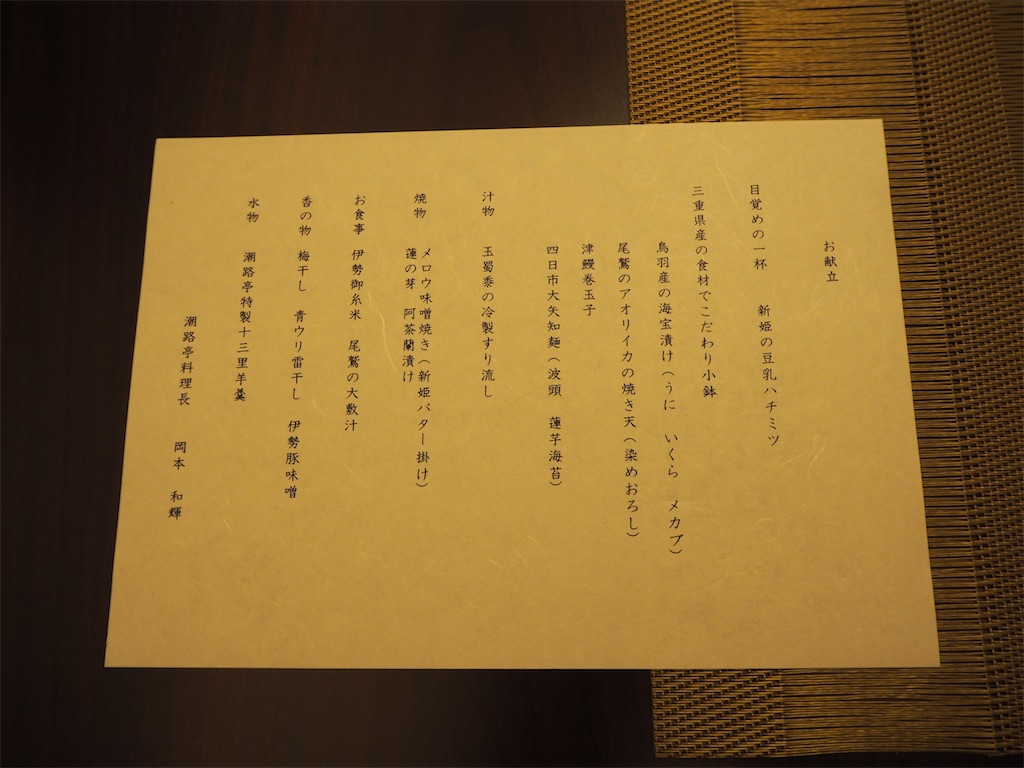 お献立
目覚めの一杯　新姫の豆乳ハチミツ
三重県産の食材でこだわり小鉢
鳥羽産の海宝漬け（うに　いくら　メカブ）
尾鷲のアオリイカの焼き天（染めおろし）
津鰻巻玉子
四日市大矢知麺（波頭　蓮芋海苔）
汁物　玉蜀黍の冷製すり流し
焼物　メロウ味噌焼き（新姫バター掛け）
蓮の芽　阿茶蘭漬け
お食事　伊勢御糸米　尾鷲の大敷汁
香の物　梅干し　青ウリ雷干し　伊勢豚味噌
水物　潮路亭特製十三里羊羹
潮路亭料理長　岡本　和輝